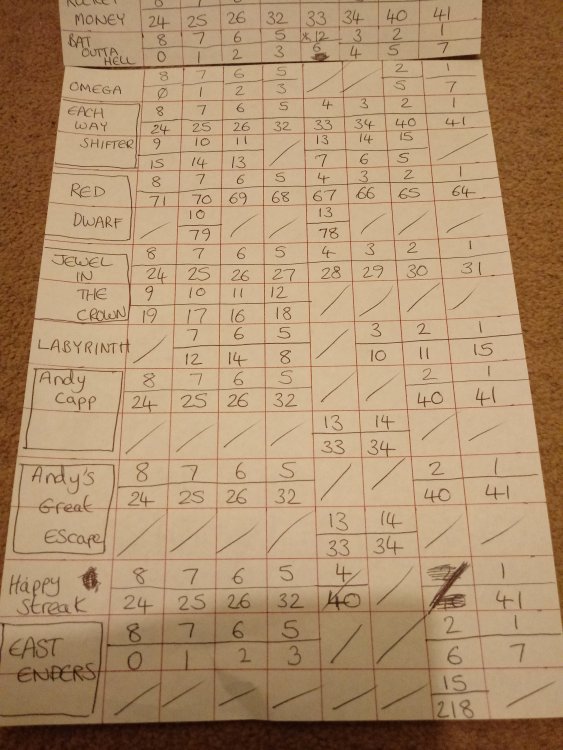 ROCKET
MONEY 24 25 26 32 33 34 40 41
BAT 8 7 6 5 3 2 1
OUTTA
HELL 0 1 2 3 6 4 5 7
8 7 6 5 / / 2 1
OMEGA Ø 1 2 3 5 7
EACH 8 7 6 5 4 3 2 1
WAY 24 25 26 32 33 34 40 41
SHIFTER 9 10 11 / 13 14 15 /
15 14 13 7 6 5
8 7 6 5 4 3 2 1
RED 71 70 69 68 67 66 65 64
DWARF / 10 / / 13 / / /
79 78
JEWEL 8 7 6 5 4 3 2 1
IN 24 25 26 27 28 29 30 31
THE 9 10 11 12 / / / /
CROWN 19 17 16 18
LABYRINTH / 7 6 5 / 3 2 1
12 14 8 10 11 15
Andy 8 7 6 5 / / 2 1
Capp 24 25 26 32 40 41
/ / / / 13 14 / /
33 34
Andy's 8 7 6 5 / / 2 1
Great 24 25 26 32 40 41
Escape / / / / 13 14 / /
33 34
Happy 8 7 6 5 4 / 1
Streak 24 25 26 32 40 41
EAST 8 7 6 5 / / 2 1
ENDERS 0 1 2 3 6 7
/ / / / / / 15 /
218